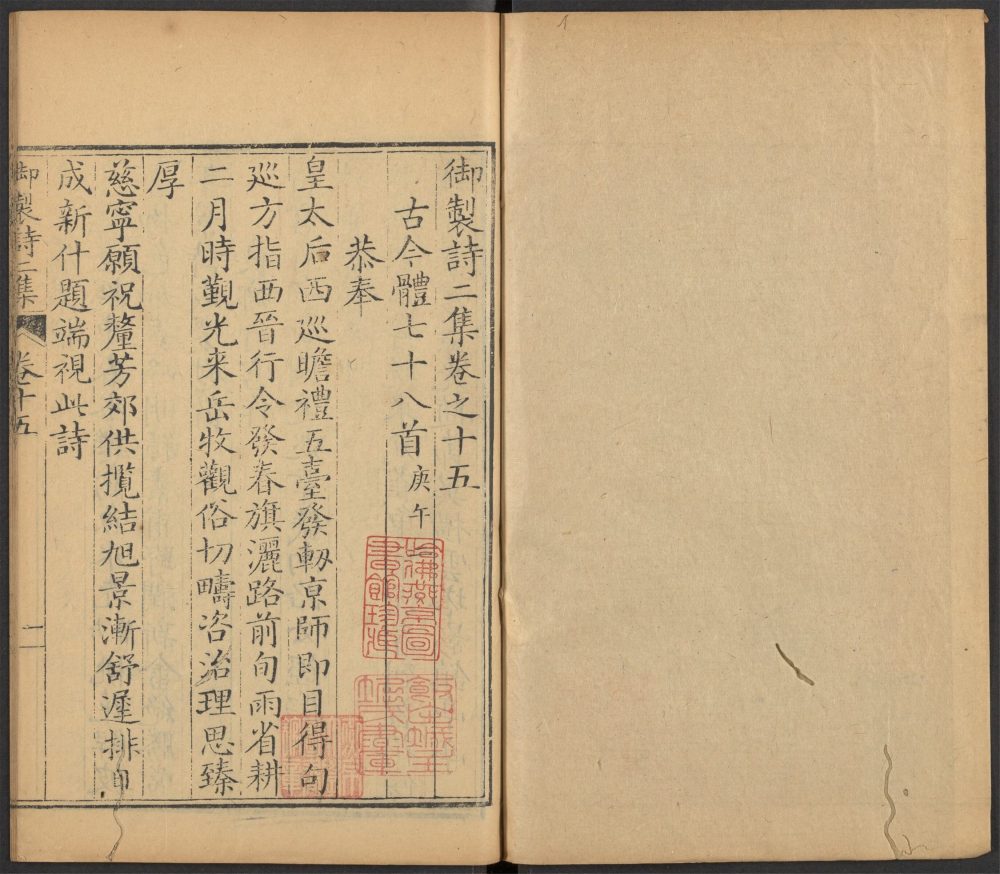 御製詩二集卷之十五
古今體七十八首庚午
恭奉
皇太后西巡瞻禮五臺發軔京師即目得句
廵方指西晉行令發春旗灑路前旬雨省耕
二月時覲光来岳牧觀俗切疇咨治理思臻
厚
慈寧願祝釐芳郊供攬結旭景漸舒遲排日
成新什題端視此詩
御製詩二集
卷十五
一
哈佛燕京圖
書館珍藏